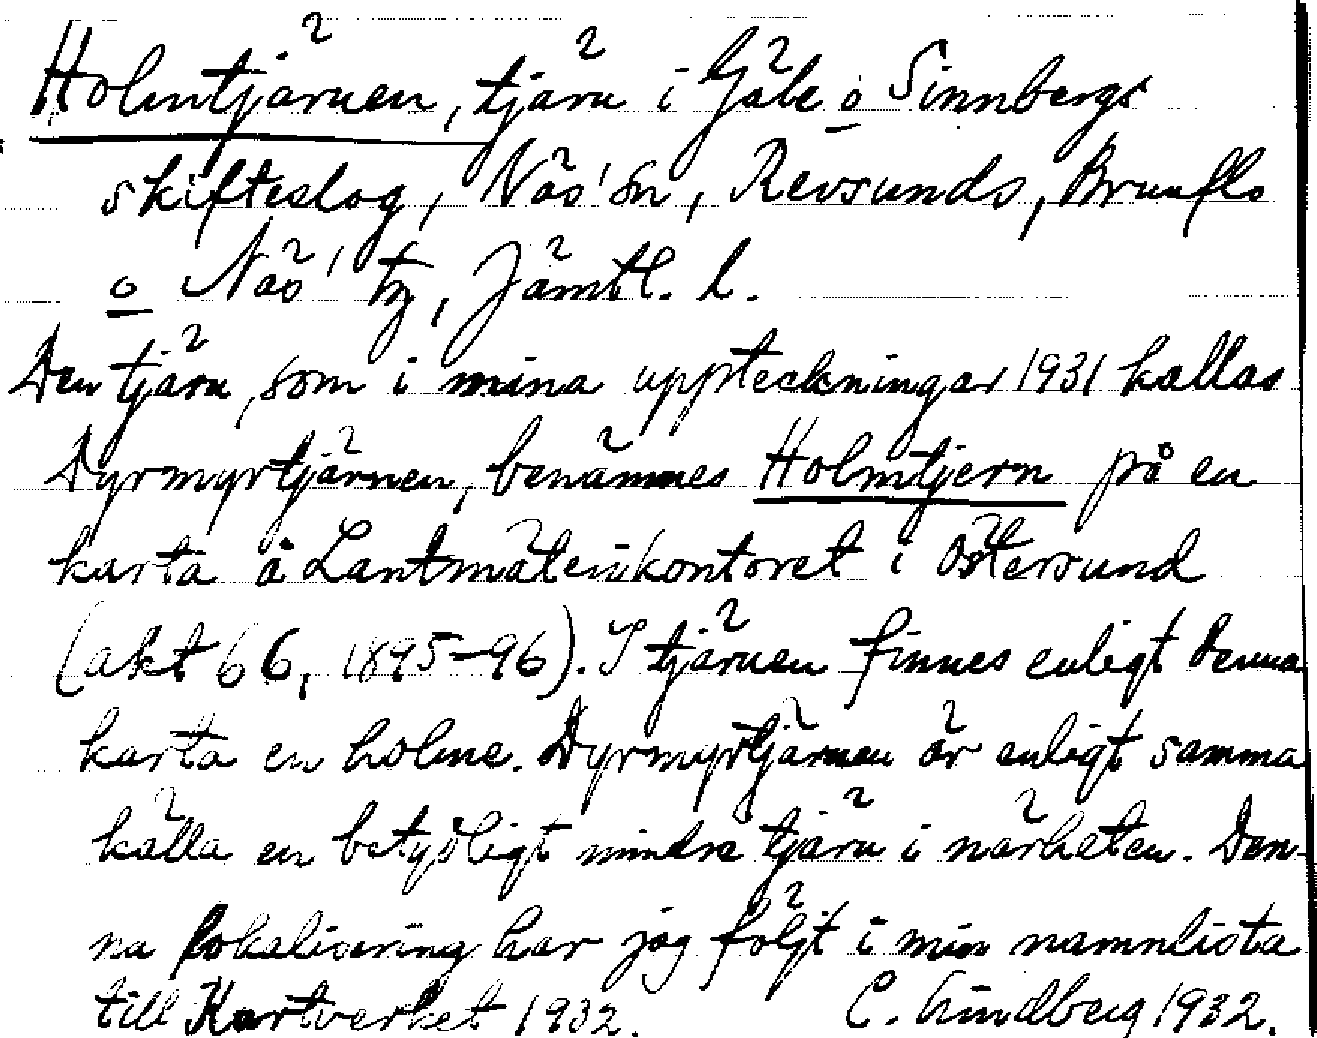 Holmtjärnen, tjärn i Gåle o Sinnbergs
skifteslag, Näs' sn, Revsunds, Brunflo
o Näs' tg, Jämtl. l.
Den tjärn, som i mina uppteckningar 1931 kallas
Dyrmyrtjärnen, benämnes Holmtjern på en
karta å Lantmäterikontoret i Östersund
(akt 66, 1895-96). I tjärnen finnes enligt denna
karta en holme. Dyrmyrtjärnen är enligt samma
källa en betydligt mindre tjärn i närheten. Den-
na lokalisering har jag följt i min namnlista
till Kartverket 1932. C. Lindberg 1932.